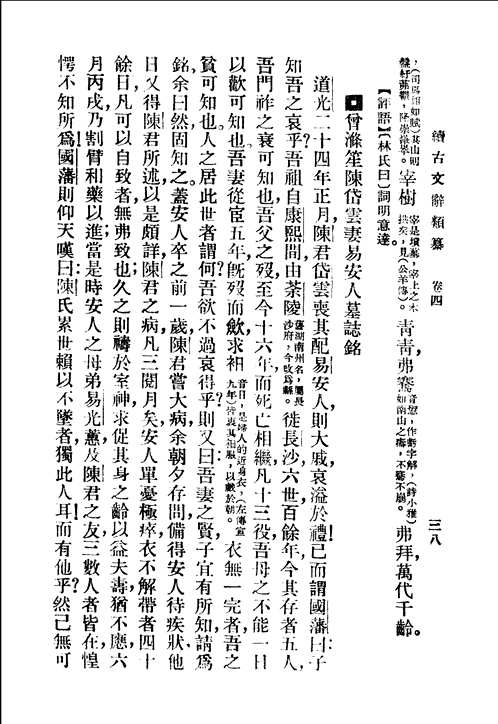 續古文辭類纂　卷四　三八
，（司馬相如賦）其山則
盤紆岪鬱，隆崇嵂崒。宰樹宰是墳墓，宰上之木拱矣，見（公羊傳）。靑靑弗騫音愆，作虧字解，（詩小雅）如南山之壽，不騫不崩。弗拜，萬代千齡。
【評語】（林氏曰）詞明意達。
曾滌笙陳岱雲妻易安人墓誌銘
道光二十四年正月，陳君岱雲喪其配易安人，則大戚，哀溢於禮！已而謂國藩曰：子
知吾之哀乎？吾祖自康熙間，由茶陵舊湖南州名，屬長沙府，今改爲縣。徙長沙六世百餘年，今其存者五人，
吾門祚之衰可知也，吾父之歿，至今十六年，而死亡相繼，凡十三役，吾母之不能一日
以歡可知也，吾妻從宦五年，旣歿而斂，求衵音日，是婦人的近身衣，（左傳宣九年）皆衷其衵服，以戲於朝。衣無一完者，吾之
貧可知也，人之居此世者謂何？吾欲不過哀得乎？則又曰：吾妻之賢，子宜有所知，請爲
銘，余曰然，固知之。蓋安人卒之前一歲，陳君嘗大病，余朝夕存問，備得安人待疾狀，他
日又得陳君所述，以是頗詳，陳君之病，凡三閱月矣，安人單憂極瘁，衣不解帶者四十
餘日，凡可以自致者，無弗致也；久之則禱於室神，求促其身之齡，以益夫壽，猶不應，六
月丙戌，乃割臂和藥以進，當是時，安人之母弟易光蕙，及陳君之友三數人者皆在，惶
愕不知所爲！國藩則仰天嘆曰：陳氏累世賴以不墜者，獨此人耳，而有他乎？然已無可